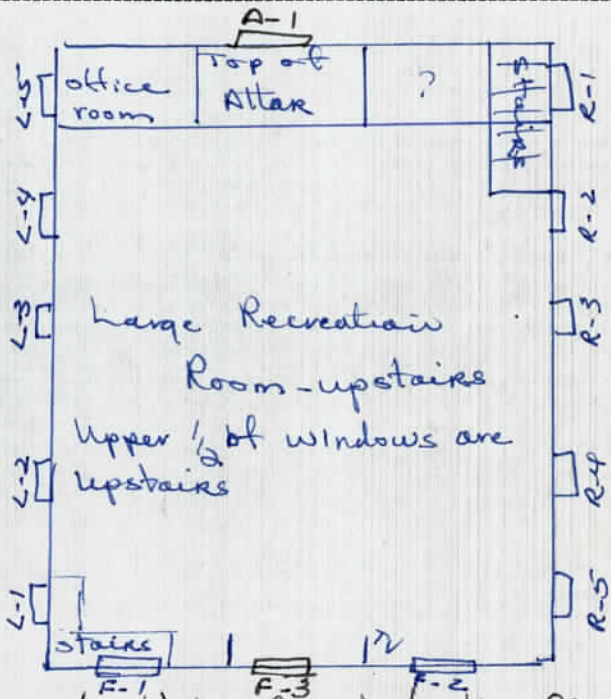 A-1
office
room
Top of
Altar
?
Stairs
L-5
R-1
L-4
R-2
L-3
R-3
Large Recreation
Room-upstairs
Upper 1/2 of windows are
upstairs
L-2
R-4
L-1
R-5
stairs
F-1
F-3
F-2